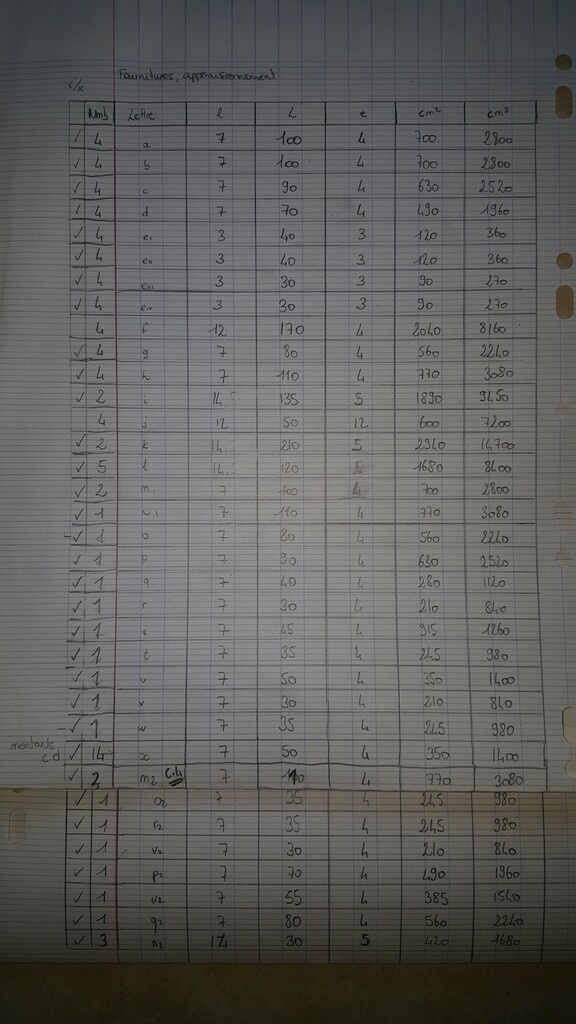 c/x Fournitures, approvisionnement.
Nmb Lettre l L e cm² cm³
✓ 4 a 7 100 4 700 2800
✓ 4 b 7 100 4 700 2800
✓ 4 c 7 90 4 630 2520
✓ 4 d 7 70 4 490 1960
✓ 4 e₁ 3 40 3 120 360
✓ 4 e₁₁ 3 40 3 120 360
✓ 4 e₁₁₁ 3 30 3 90 270
✓ 4 e₁ᵥ 3 30 3 90 270
4 f 12 170 4 2040 8160
✓ 4 g 7 80 4 560 2240
✓ 4 h 7 110 4 770 3080
✓ 2 i 14 135 5 1890 9450
4 j 12 50 12 600 7200
✓ 2 k 14 210 5 2940 14700
✓ 5 l 14 120 5 1680 8400
✓ 2 m₁ 7 100 4 700 2800
✓ 1 n₁ 7 110 4 770 3080
-✓ 1 o 7 80 4 560 2240
✓ 1 p 7 90 4 630 2520
✓ 1 q 7 40 4 280 1120
✓ 1 r 7 30 4 210 840
✓ 1 s 7 45 4 315 1260
✓ 1 t 7 35 4 245 980
✓ 1 u 7 50 4 350 1400
✓ 1 v 7 30 4 210 840
-✓ 1 w 7 35 4 245 980
montants c.d ✓ 14 x 7 50 4 350 1400
✓ 2 m₂ 7 110 4 770 3080
✓ 1 o₂ 7 35 4 245 980
✓ 1 7 35 4 245 980
✓ 1 v₂ 7 30 4 210 840
✓ 1 p₂ 7 70 4 490 1960
✓ 1 u₂ 7 55 4 385 1540
✓ 1 q₂ 7 80 4 560 2240
✓ 3 14 30 5 420 1680